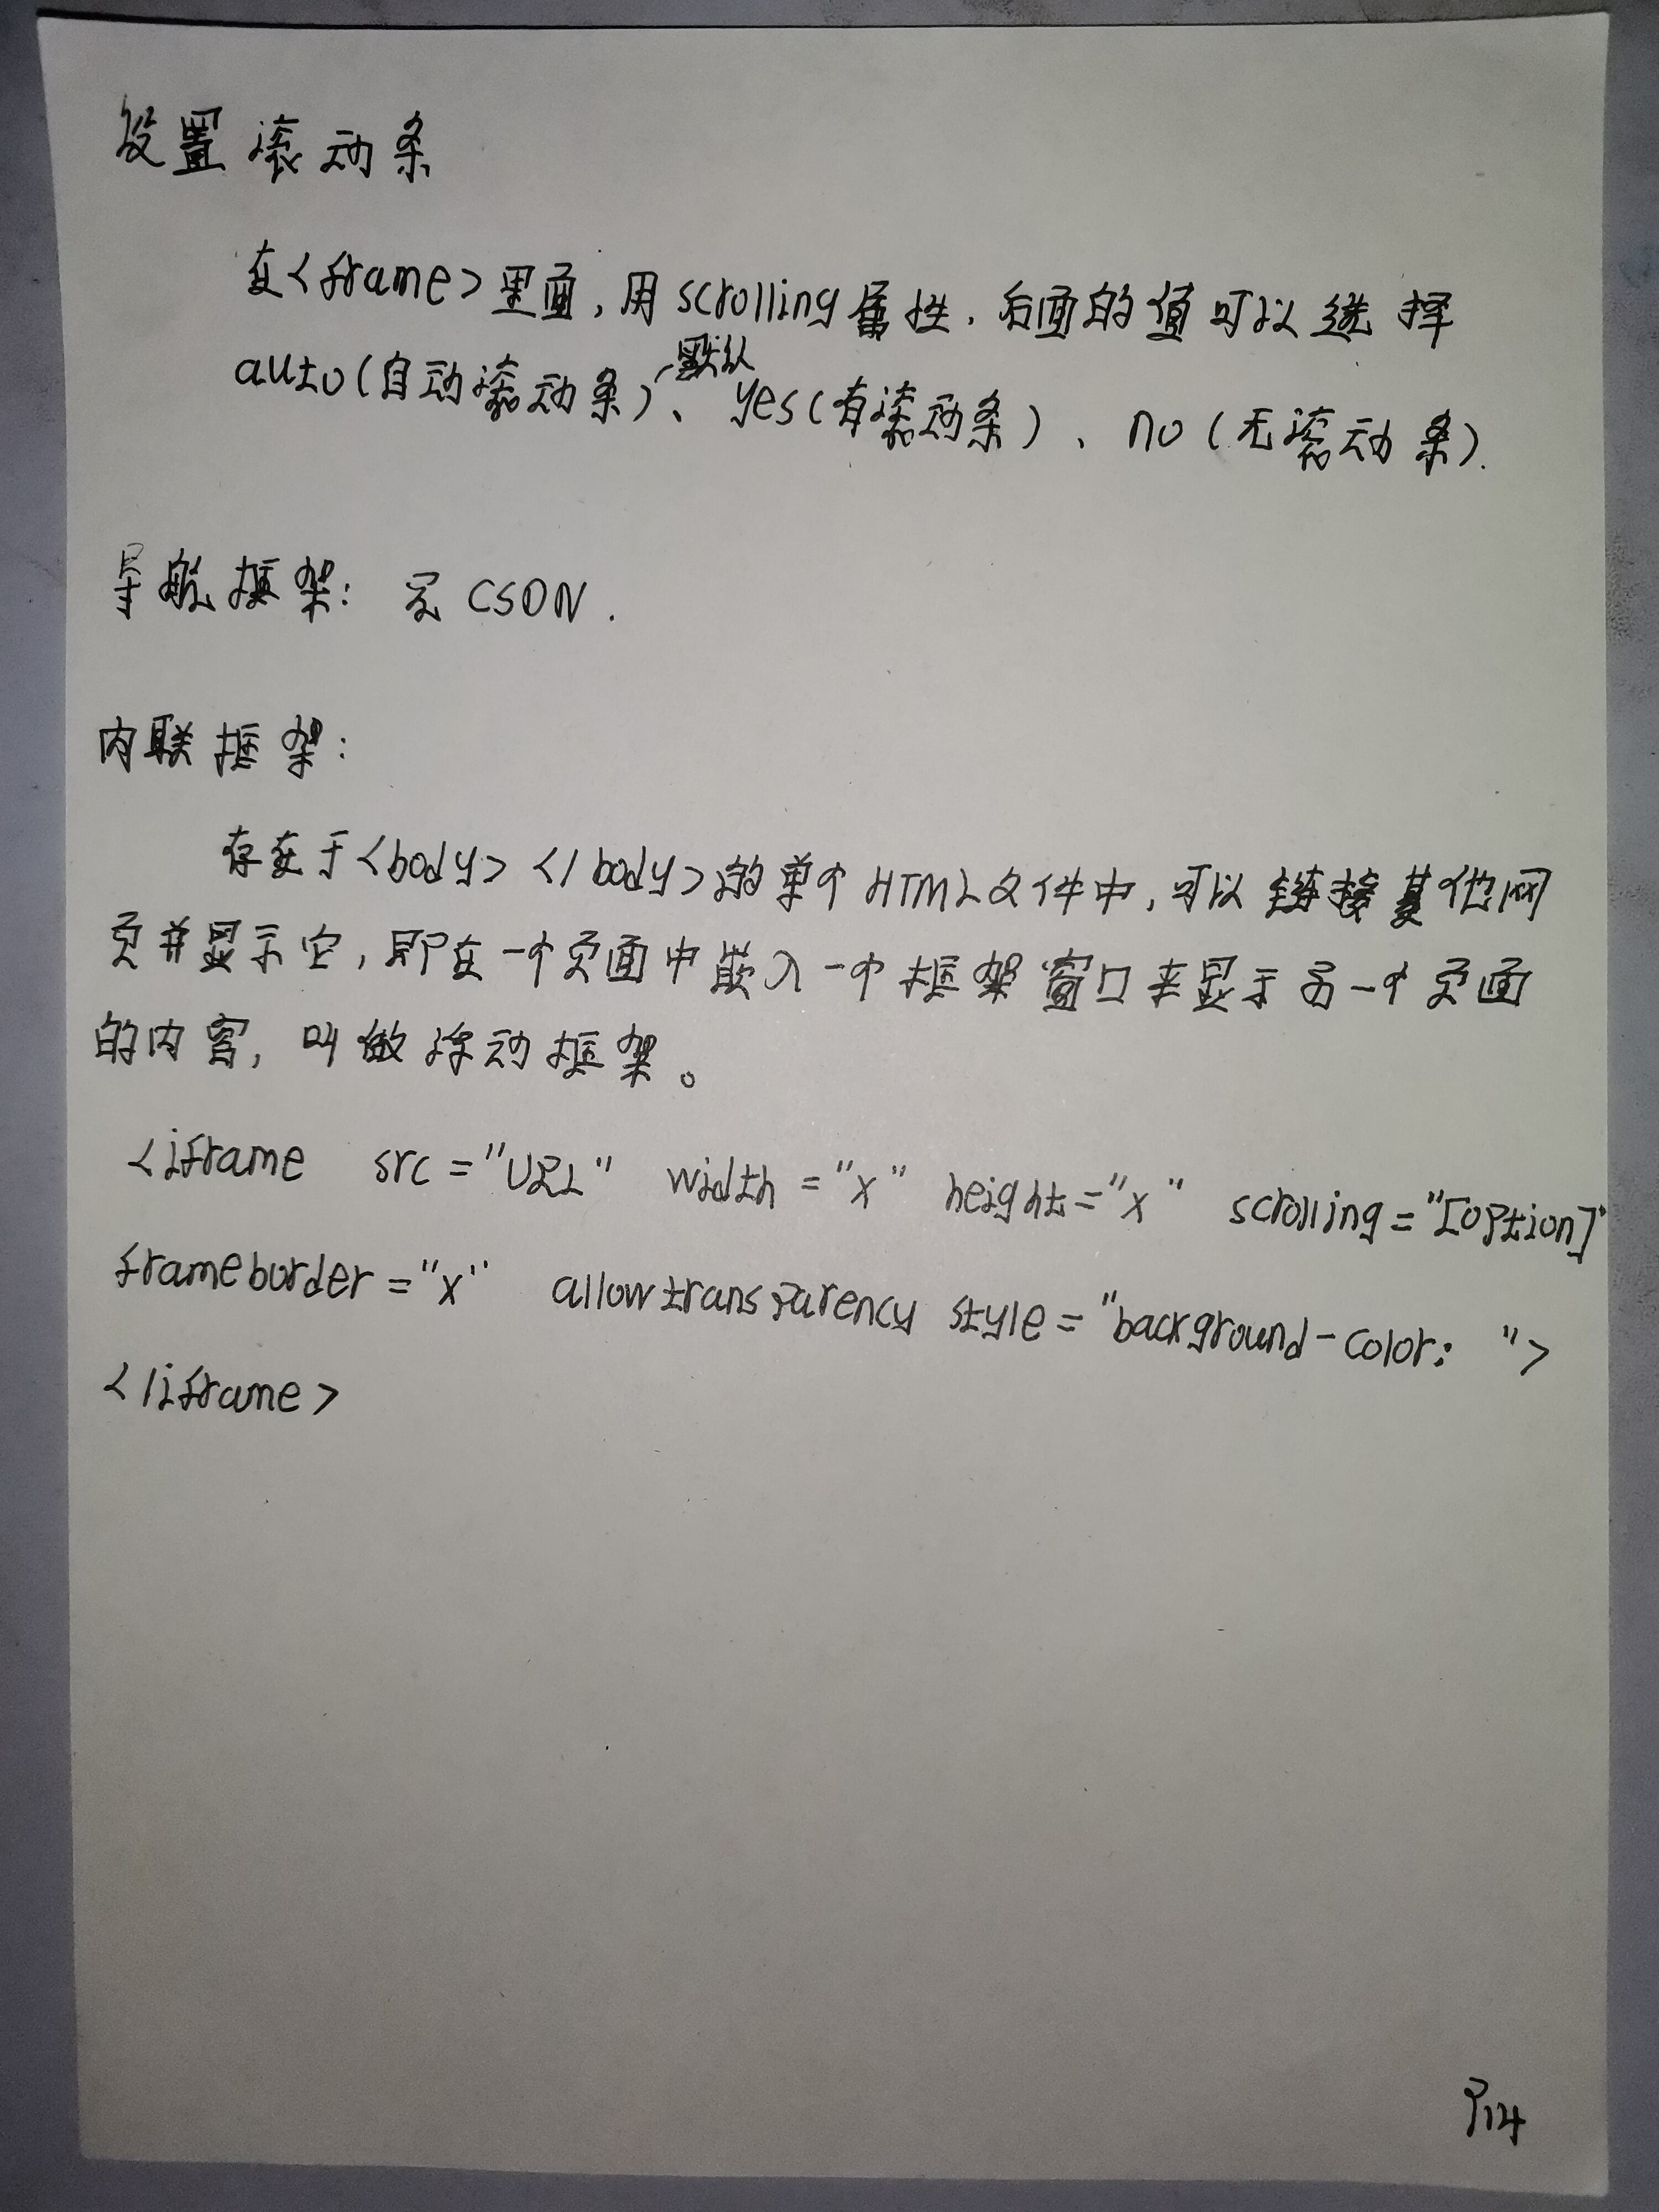 设置滚动条
在<frame>里面,用scrolling属性.后面的值可以选择
默认
auto(自动滚动条)、yes(有滚动条)、no(无滚动条).
导航框架: 见CSDN.
内联框架:
存在于<body></body>的单个HTML文件中,可以链接其他网
页并显示它,即在一个页面中嵌入一个框架窗口来显示另一个页面
的内容,叫做浮动框架。
<iframe src="URL" width="x" height="x" scrolling="[option]"
frameborder="x" allowtransparency style="background-color: ">
</iframe>
P14